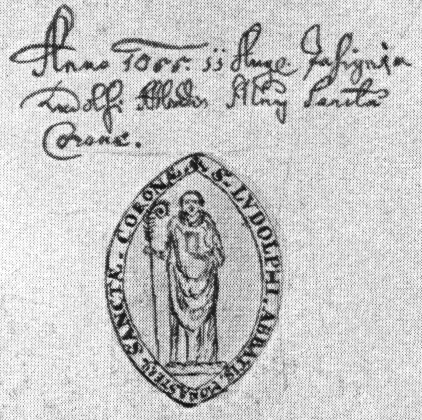 Anno 1055. ii Auge Insignia
Ludolfi Abbatis Sancta
Coronæ.
✠ S. LVDOLPHI. ABBATIS. MONASTERII. SANCTE. CORONÆ